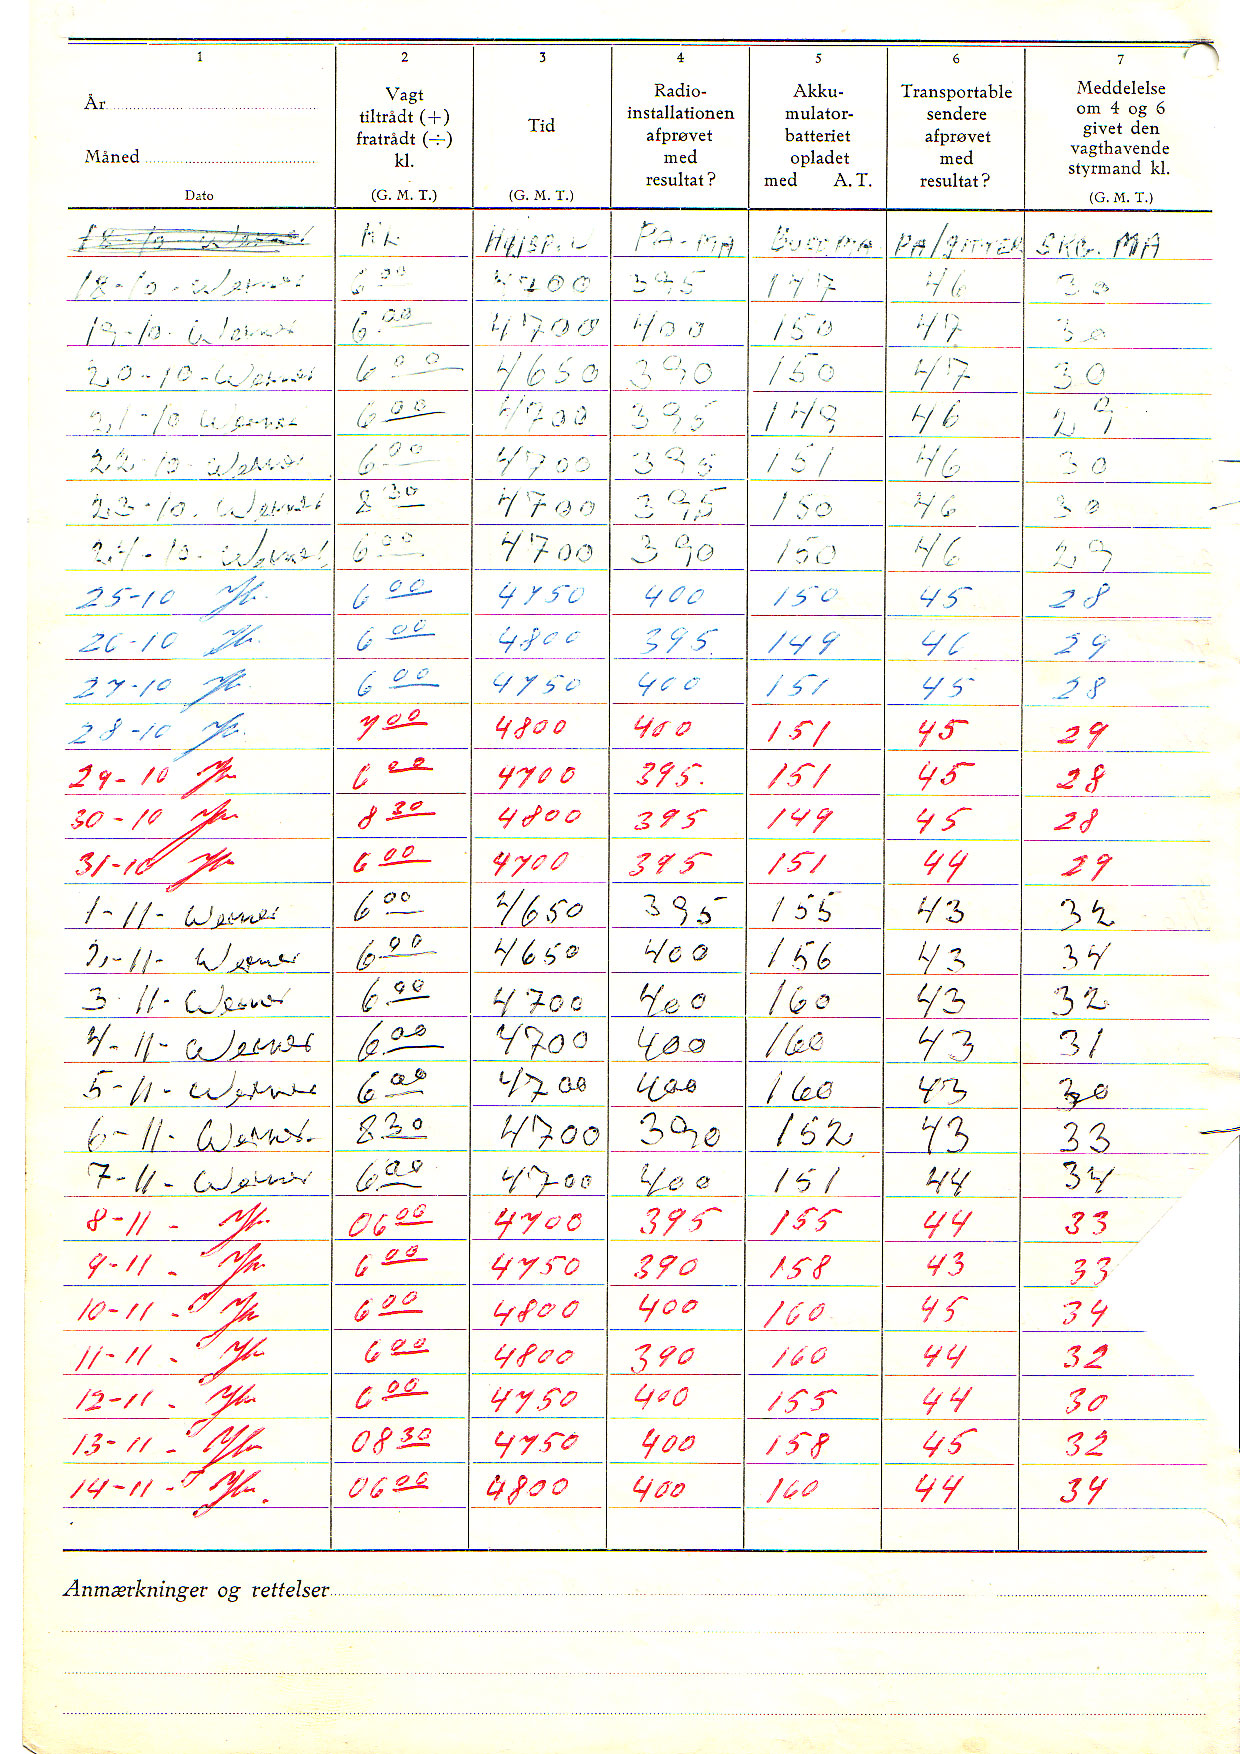 1 2 3 4 5 6 7
År Vagt tiltrådt (+) fratrådt (÷) kl. Tid Radio-installationen afprøvet med resultat? Akku-mulator-batteriet opladet med A.T. Transportable sendere afprøvet med resultat? Meddelelse om 4 og 6 givet den vagthavende styrmand kl.
Måned
Dato (G. M. T.) (G. M. T.) (G. M. T.)
18-10-Werner KL HØJSP. V PA-MA MA PA/GITTER SKG. MA
18-10-Werner 6 00 4700 395 147 46 30
19-10-Werner 6.00 4700 400 150 47 30
20-10-Werner 6 00 4650 390 150 47 30
21-10 Werner 6 00 4700 395 149 46 29
22-10-Werner 6.00 4700 395 151 46 30
23-10. Werner 8 30 4700 395 150 46 30
24-10-Werner 6 00 4700 390 150 46 29
25-10 6 00 4750 400 150 45 28
26-10 6 00 4800 395. 149 46 29
27-10 6 00 4750 400 151 45 28
28-10 7 00 4800 400 151 45 29
29-10 6 00 4700 395. 151 45 28
30-10 8 30 4800 395 149 45 28
31-10 6 00 4700 395 151 44 29
1-11-Werner 6 00 4650 395 155 43 32
2-11-Werner 6.00 4650 400 156 43 34
3-11-Werner 6 00 4700 400 160 43 32
4-11-Werner 6.00 4700 400 160 43 31
5-11-Werner 6 00 4700 400 160 43 30
6-11-Werner. 8 30 4700 390 152 43 33
7-11-Werner 6.00 4700 400 151 44 34
8-11- 06 00 4700 395 155 44 33
9-11- 6 00 4750 390 158 43 33
10-11- 6 00 4800 400 160 45 34
11-11- 6 00 4800 390 160 44 32
12-11- 6 00 4750 400 155 44 30
13-11- 08 30 4750 400 158 45 32
14-11- 06 00 4800 400 160 44 34
Anmærkninger og rettelser